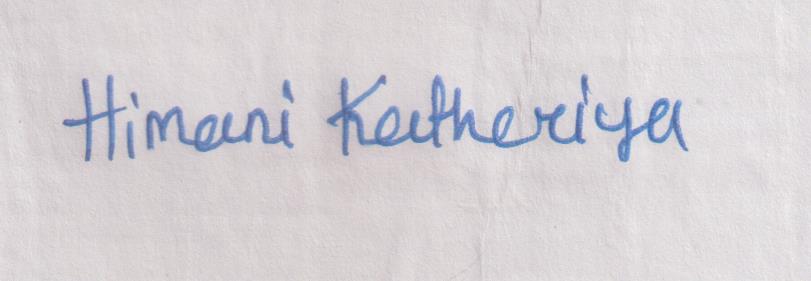 Himani Katheriya